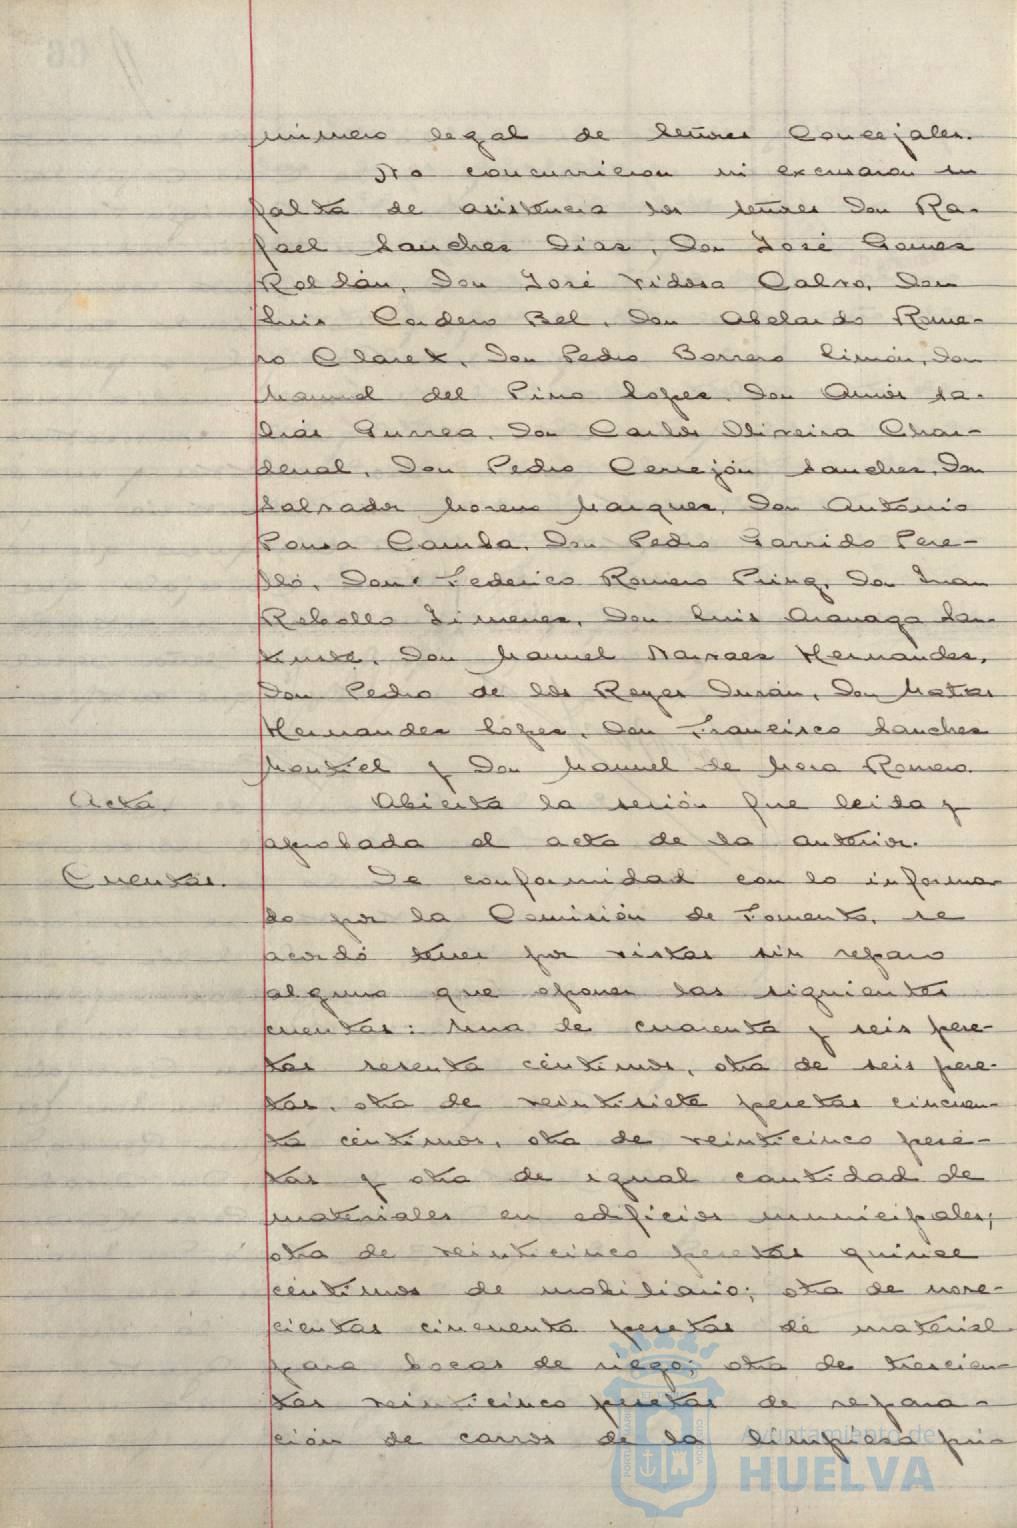 número legal de señores Concejales.
No concurrieron ni excusaron su
falta de asistencia los señores Don Ra-
fael Sanchez Diaz, Don José Gomez
Roldán, Don José Vidosa Calvo, Don
Luis Cordero Bel, Don Abelardo Rome-
ro Claret, Don Pedro Borrero Limón, Don
Manuel del Pino Lopez, Don Amós Sa-
brás Gurrea, Don Carlos Oliveira Chai-
denal, Don Pedro Cerrejón Sanchez, Don
Salvador Moreno Marquez, Don Antonio
Pousa Camba, Don Pedro Garrido Pere-
lló, Don Federico Romero Puig, Don Juan
Rebollo Jimenez, Don Luis Aranaga San-
Don Manuel Narvaez Hernandez,
Don Pedro de los Reyes Durán, Don Matias
Hernandez Lopez, Don Francisco Sanchez
Montiel y Don Manuel de Mora Romero.
Acta. Abierta la sesión fue leida y
aprobada el acta de la anterior.
Cuentas. De conformidad con lo informa-
do por la Comisión de Fomento, se
acordó tener por vistas sin reparo
alguno que oponer las siguientes
cuentas: Una de cuarenta y seis pese-
tas sesenta céntimos, otra de seis pese-
tas, otra de veintisiete pesetas cincuen-
ta céntimos, otra de veinticinco pese-
tas y otra de igual cantidad de
materiales en edificios municipales;
otra de veinticinco pesetas quince
céntimos de mobiliario; otra de nove-
cientas cincuenta pesetas de material
para bocas de riego; otra de trescien-
tas veinticinco pesetas de repara-
ción de carros de la limpieza pú-
Ayuntamiento de
HUELVA